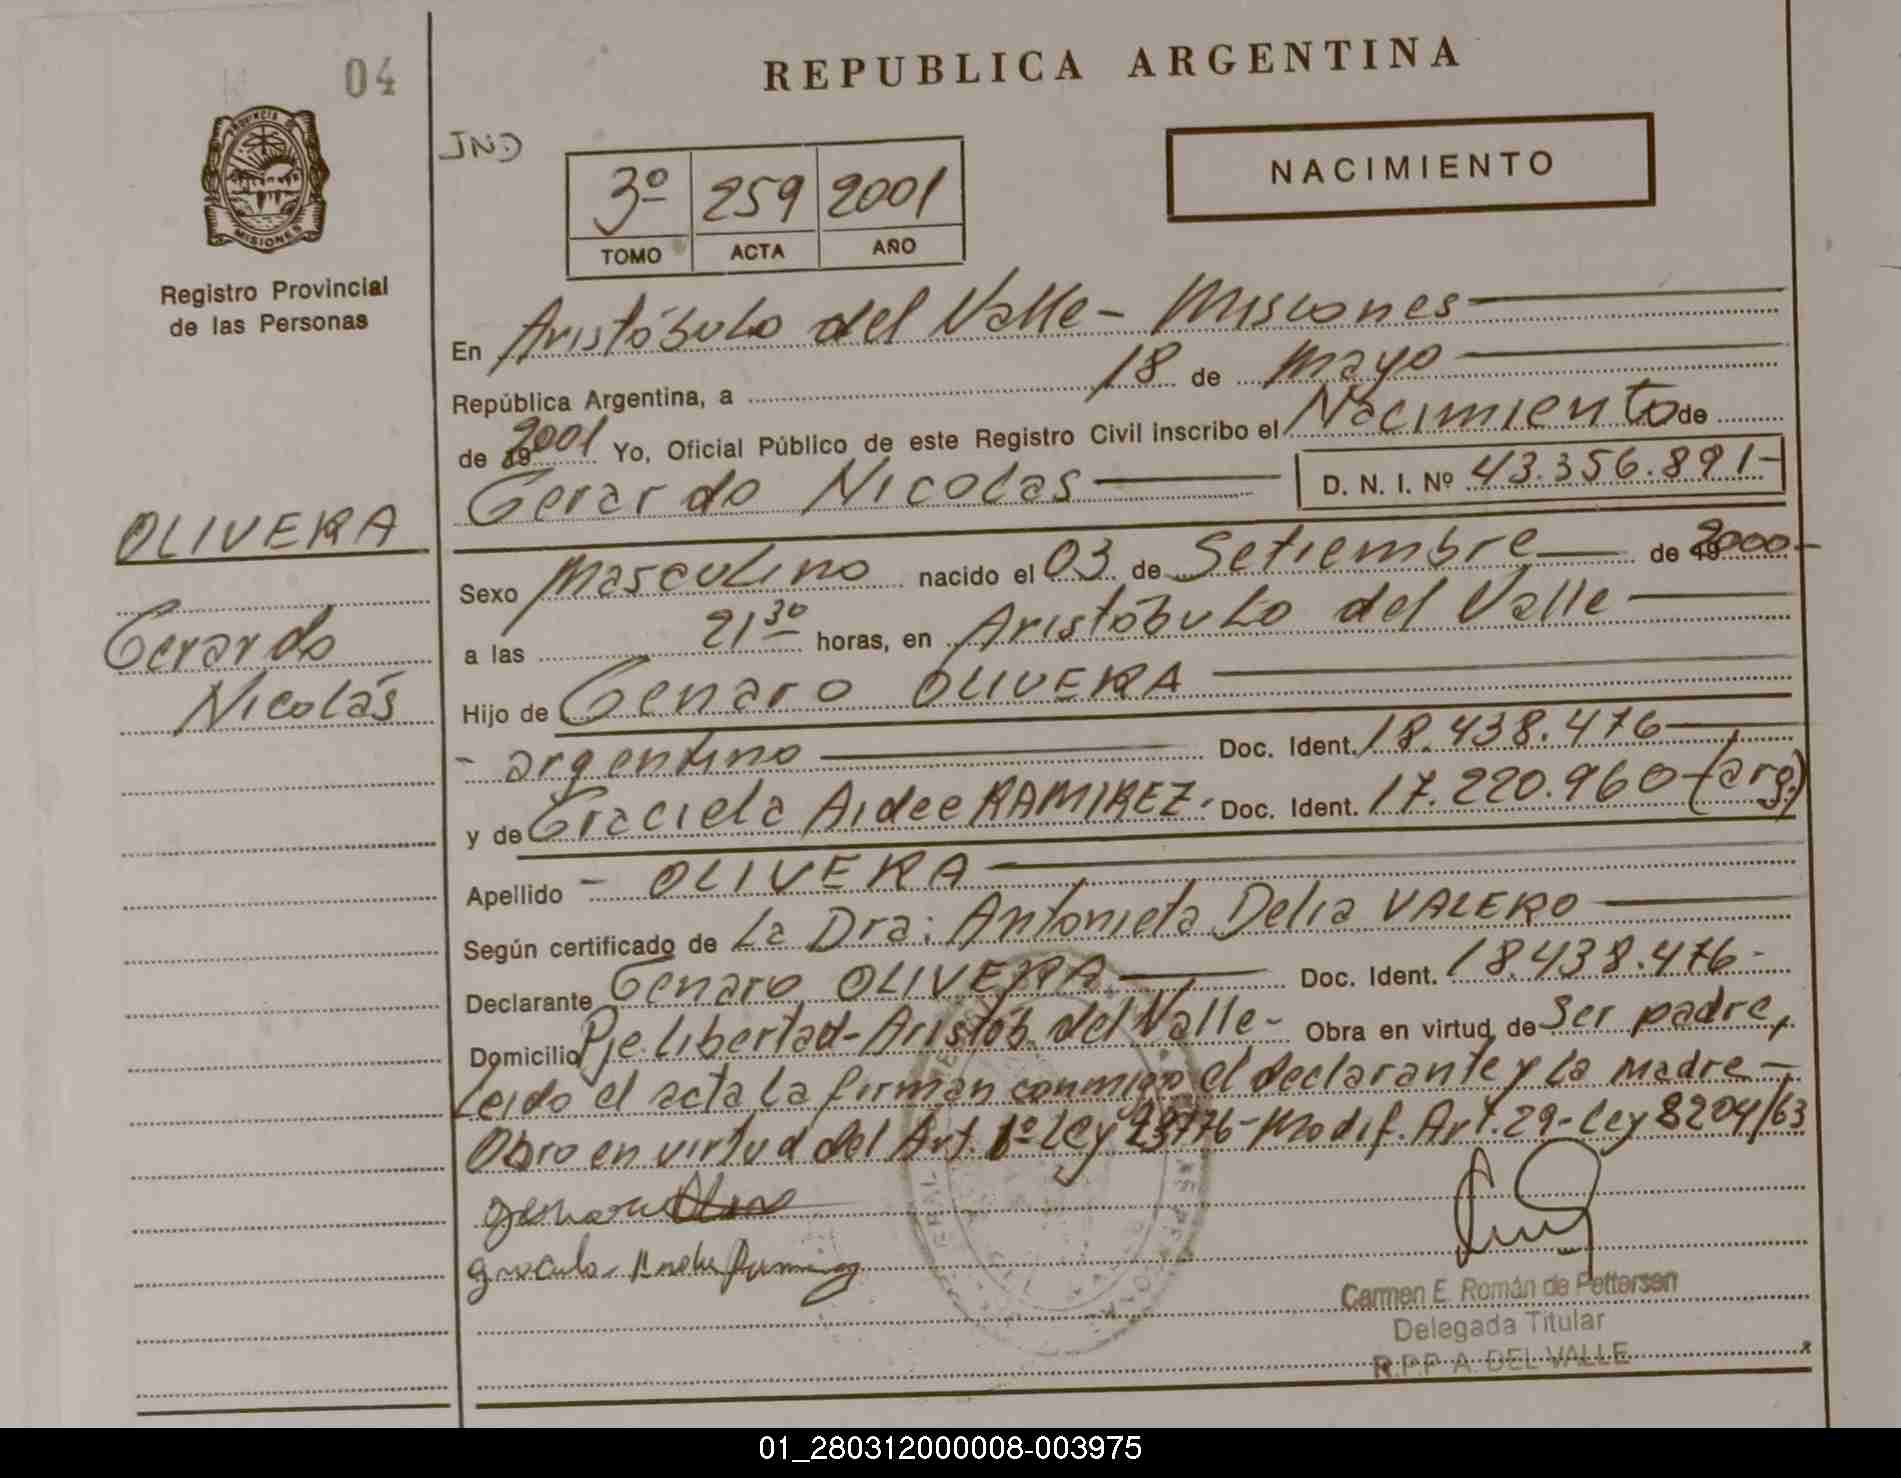 04
REPUBLICA ARGENTINA
PROVINCIA DE
MISIONES
Registro Provincial
de las Personas
IND
3º 259 2001
TOMO ACTA AÑO
NACIMIENTO
En Aristóbulo del Valle - Misiones
República Argentina, a 18 de Mayo
de 19 2001 Yo, Oficial Público de este Registro Civil inscribo el Nacimiento de
Gerardo Nicolas D. N. I. Nº 43.356.891-
OLIVERA
Gerardo
Nicolás
Sexo Masculino nacido el 03 de Setiembre de 19 2000-
a las 21 30 horas, en Aristóbulo del Valle
Hijo de Genaro OLIVERA
- argentino Doc. Ident. 18.438.476
y de Graciela Aidee RAMIREZ. Doc. Ident. 17.220.960-(arg.)
Apellido - OLIVERA
Según certificado de La Dra: Antonieta Delia VALERO
Declarante Genaro OLIVERA Doc. Ident. 18.438.476-
Domicilio Pje. Libertad - Aristób. del Valle - Obra en virtud de Ser padre,
Leido el acta la firman conmigo el declarante y la madre -
Obro en virtud del Art. 1º Ley 23776 - Modif. Art. 29 - Ley 8204/63
Carmen E. Román de Pettersen
Delegada Titular
R.P.P. A. DEL VALLE
01_280312000008-003975